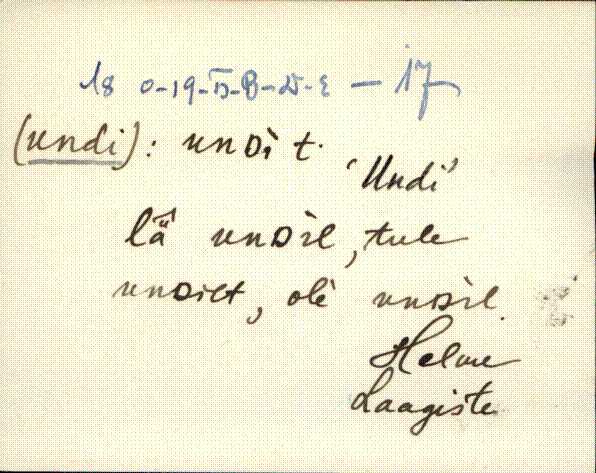 18 0-19-D-B-D-E — 17
(undi): unDi t.
'Undi'
lä̆ unDil, tule
unDilt, ole unDil.
Helme
Laagiste